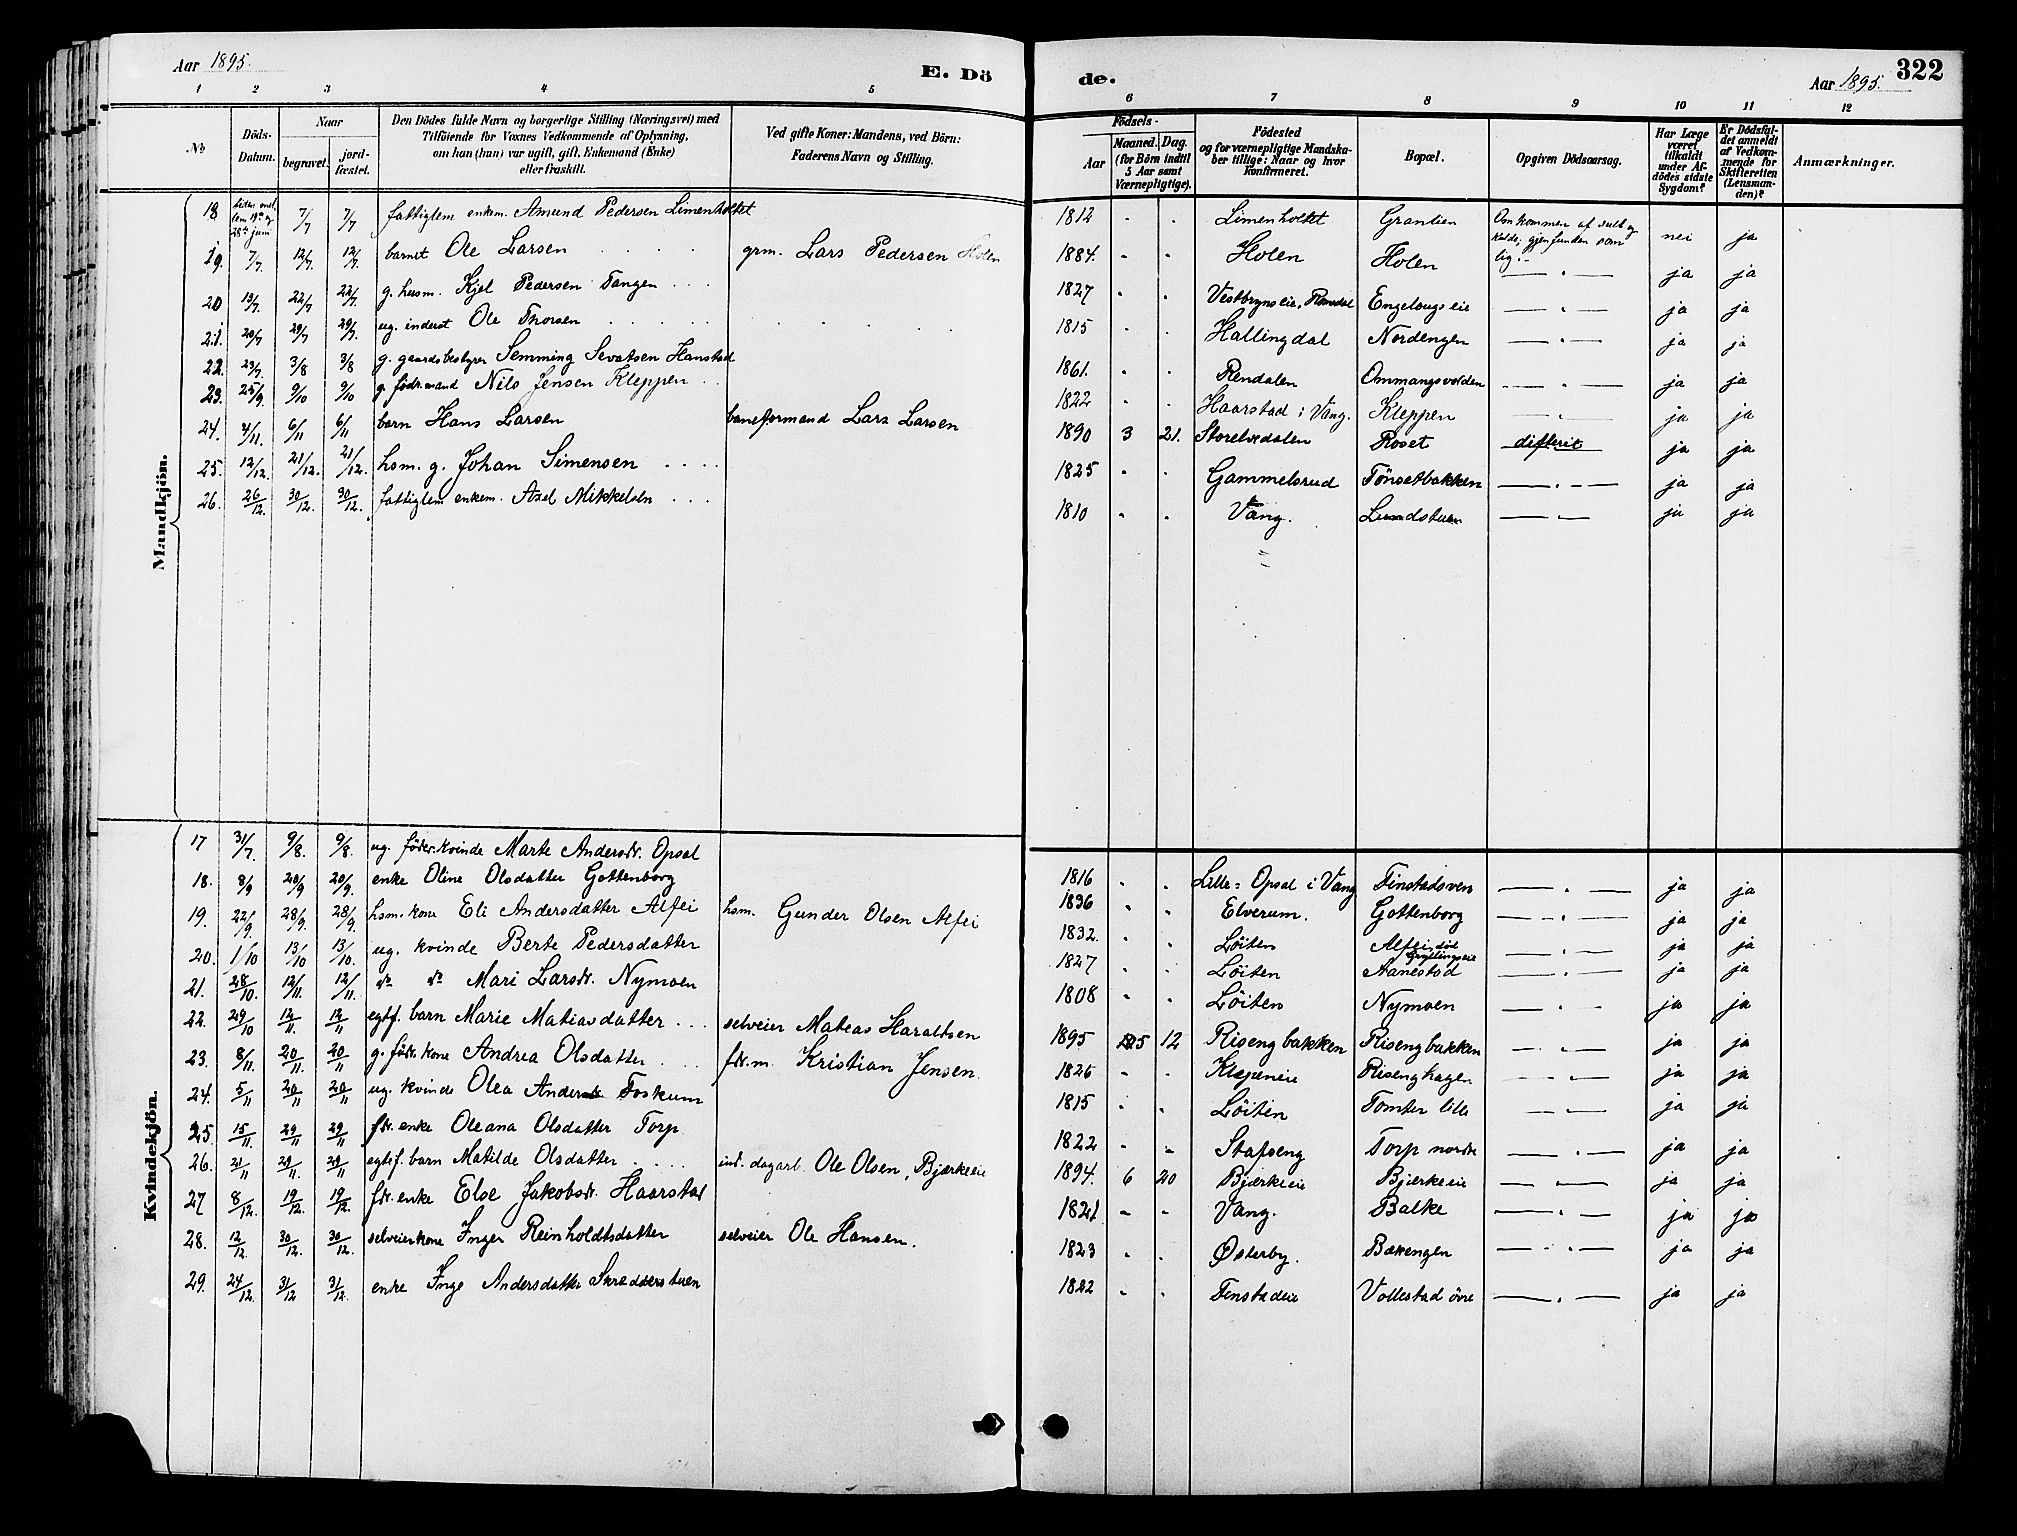 Aar 1895.
E. Dö
de.
Aar 1895.
322
1 2 3 4 5
6 7 8 9 10 11 12
No.
Döds-Datum.
Naar
begravet.
jord-fæstet.
Den Dödes fulde Navn og borgerlige Stilling (Næringsvei) med
Tilföiende for Voxnes Vedkommende af Oplysning,
om han (hun) var ugift, gift, Enkemand (Enke)
eller fraskilt.
Ved gifte Koner: Mandens, ved Börn:
Faderens Navn og Stilling.
Födsels-
Aar
Maaned. Dag.
(for Börn indtil
5 Aar samt
Værnepligtige).
Födested
og for værnepligtige Mandska-
ber tillige: Naar og hvor
konfirmeret.
Bopæl.
Opgiven Dödsaarsag.
Har Læge
været
tilkaldt
under Af-
dödes sidste
Sygdom?
Er Dödsfal-
det anmeldt
af Vedkom-
mende for
Skifteretten
(Lensman-
den)?
Anmærkninger.
Mandkjön.
18 tiden mel. lem 19de og 28de juni 7/7 7/7 fattiglem enkem. Amund Pedersen Limenholtet 1812 " " Limenholtet Granlien Omkommen af sult og kulde; gjenfunden som lig. nei ja
19. 7/7. 12/7. 12/7. barnet Ole Larsen grm. Lars Pedersen Holen 1884. " " Holen Holen — " — ja ja
20 13/7. 22/7 22/7. g. husm. Kjel Pedersen Tangen 1827 " " Vestbyns eie, Romedal Engelaugs eie — " — ja ja
21. 20/7 29/7 29/7. ug. inderst Ole Thorsen 1815 " " Hallingdal Nordengen — " — ja ja
22. 29/7. 3/8 3/8 g. gaardsbestyrer Semming Sevatsen Hanstad 1861. " " Rendalen Ommangsvolden — " — ja ja
23. 25/9. 9/10 9/10 g. föder.mand Nils Jensen Kleppen 1822 " " Haarstad i Vang. Kleppen — " — ja ja
24. 4/11. 6/11 6/11 barn Hans Larsen baneformand Lars Larsen 1890 3 21. Storelvedalen Roset difterit ja ja
25. 12/12. 21/12. 21/12. hsm. g. Johan Simensen 1825 " " Gammelsrud Tönsetbakken — " — ja ja
26. 26/12. 30/12. 30/12. fattiglem enkem. Axel Mikkelsen 1810 " " Vang. Lundstuen — " — ja ja
Kvindekjön.
17 31/7. 9/8. 9/8. ug. föder.kvinde Marte Andersdr. Opsal 1816 " " Lille-Opsal i Vang Finstadsven — " — ja ja
18. 8/9 20/9 20/9. enke Oline Olsdatter Gottenborg 1836 " " Elverum. Gottenborg — " — ja ja
19. 22/9. 28/9. 28/9. hsm. kone Eli Andersdatter Alfei hsm. Gunder Olsen Alfei 1832. " " Löiten Alfei död — " — ja ja
20. 1/10 13/10 13/10. ug. kvinde Berte Pedersdatter 1827 " " Löiten Aanestad — " — ja ja
21. 28/10. 12/11. 12/11. do do Mari Larsdr. Nymoen 1808 " " Löiten Nymoen — " — ja ja
22. 29/10 12/11. 12/11 egtf. barn Marie Matiasdatter selveier Mateas Haraldsen 1895 5 12 Risengbakken Risengbakken — " — ja ja
23. 8/11. 20/11 20/11 g. föder. kone Andrea Olsdatter fdr. m. Kristian Jensen. 1826 " " Klæpeneie Risenghagen — " — ja ja
24. 5/11 20/11 20/11 ug. kvinde Olea Andersdr Foskum 1815 " " Löiten Tomter lille — " — ja ja
25. 15/11. 29/11 29/11 fdr. enke Oleana Olsdatter Torp 1822 " " Stafseng Torp nordre — " — ja ja
26. 21/11 29/11 29/11 egtef. barn Matilde Olsdatter ind. dagarb. Ole Olsen, Bjærkeeie 1894. 6 20 Bjærkeeie Bjerkeeie — " — ja ja
27 8/12. 19/12. 19/12. fdr. enke Else Jakobsdr. Haarstad 1821 " " Vang. Balke — " — ja ja
28. 12/12. 30/12. 30/12. selveierkone Inger Reinholdtsdatter selveier Ole Hansen. 1823 " " Østerby. Bækengen — " — ja ja
29. 24/12. 31/12 31/12. enke Inge Andersdatter Skredderstuen 1822 " " Finstadeie Vollestad övre — " — ja ja